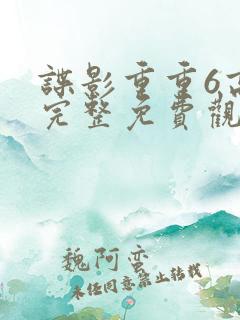 諜影重重6高
完整免費觀
魏阿蛮
未经同意禁止转载